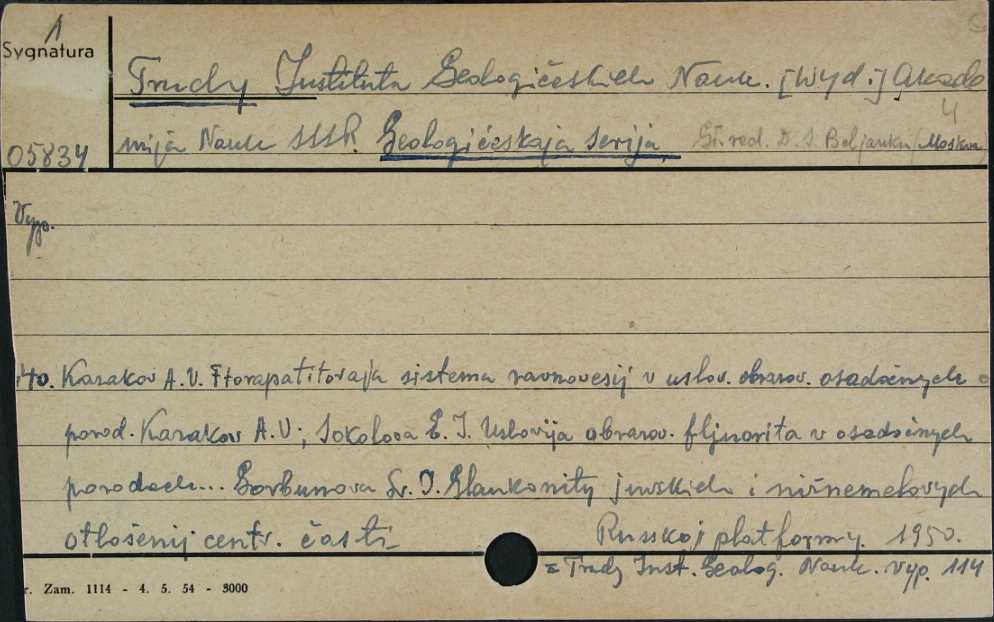 1
Sygnatura
Trudy Instituta Geologičeskich Nauk. [Wyd.] Akade
4
mija Nauk SSSR. Geologičeskaja serija. Gł. red. D. S. Beljankin (Moskva)
05834
Vyp.
140. Kazakov A.V. Ftorapatitovaja sistema ravnovesij v uslov. obrazov. osadočnych
porod. Kazakov A.V.; Sokolova E. I. Uslovija obrazov. fljuorita v osadočnych
porodach... Gorbunova L. I. Glaukonity jurskich i nižnemelovych
otloženij centr. časti Russkoj platformy. 1950.
= Trudy Inst. Geolog. Nauk. vyp. 114
r. Zam. 1114 - 4. 5. 54 - 8000